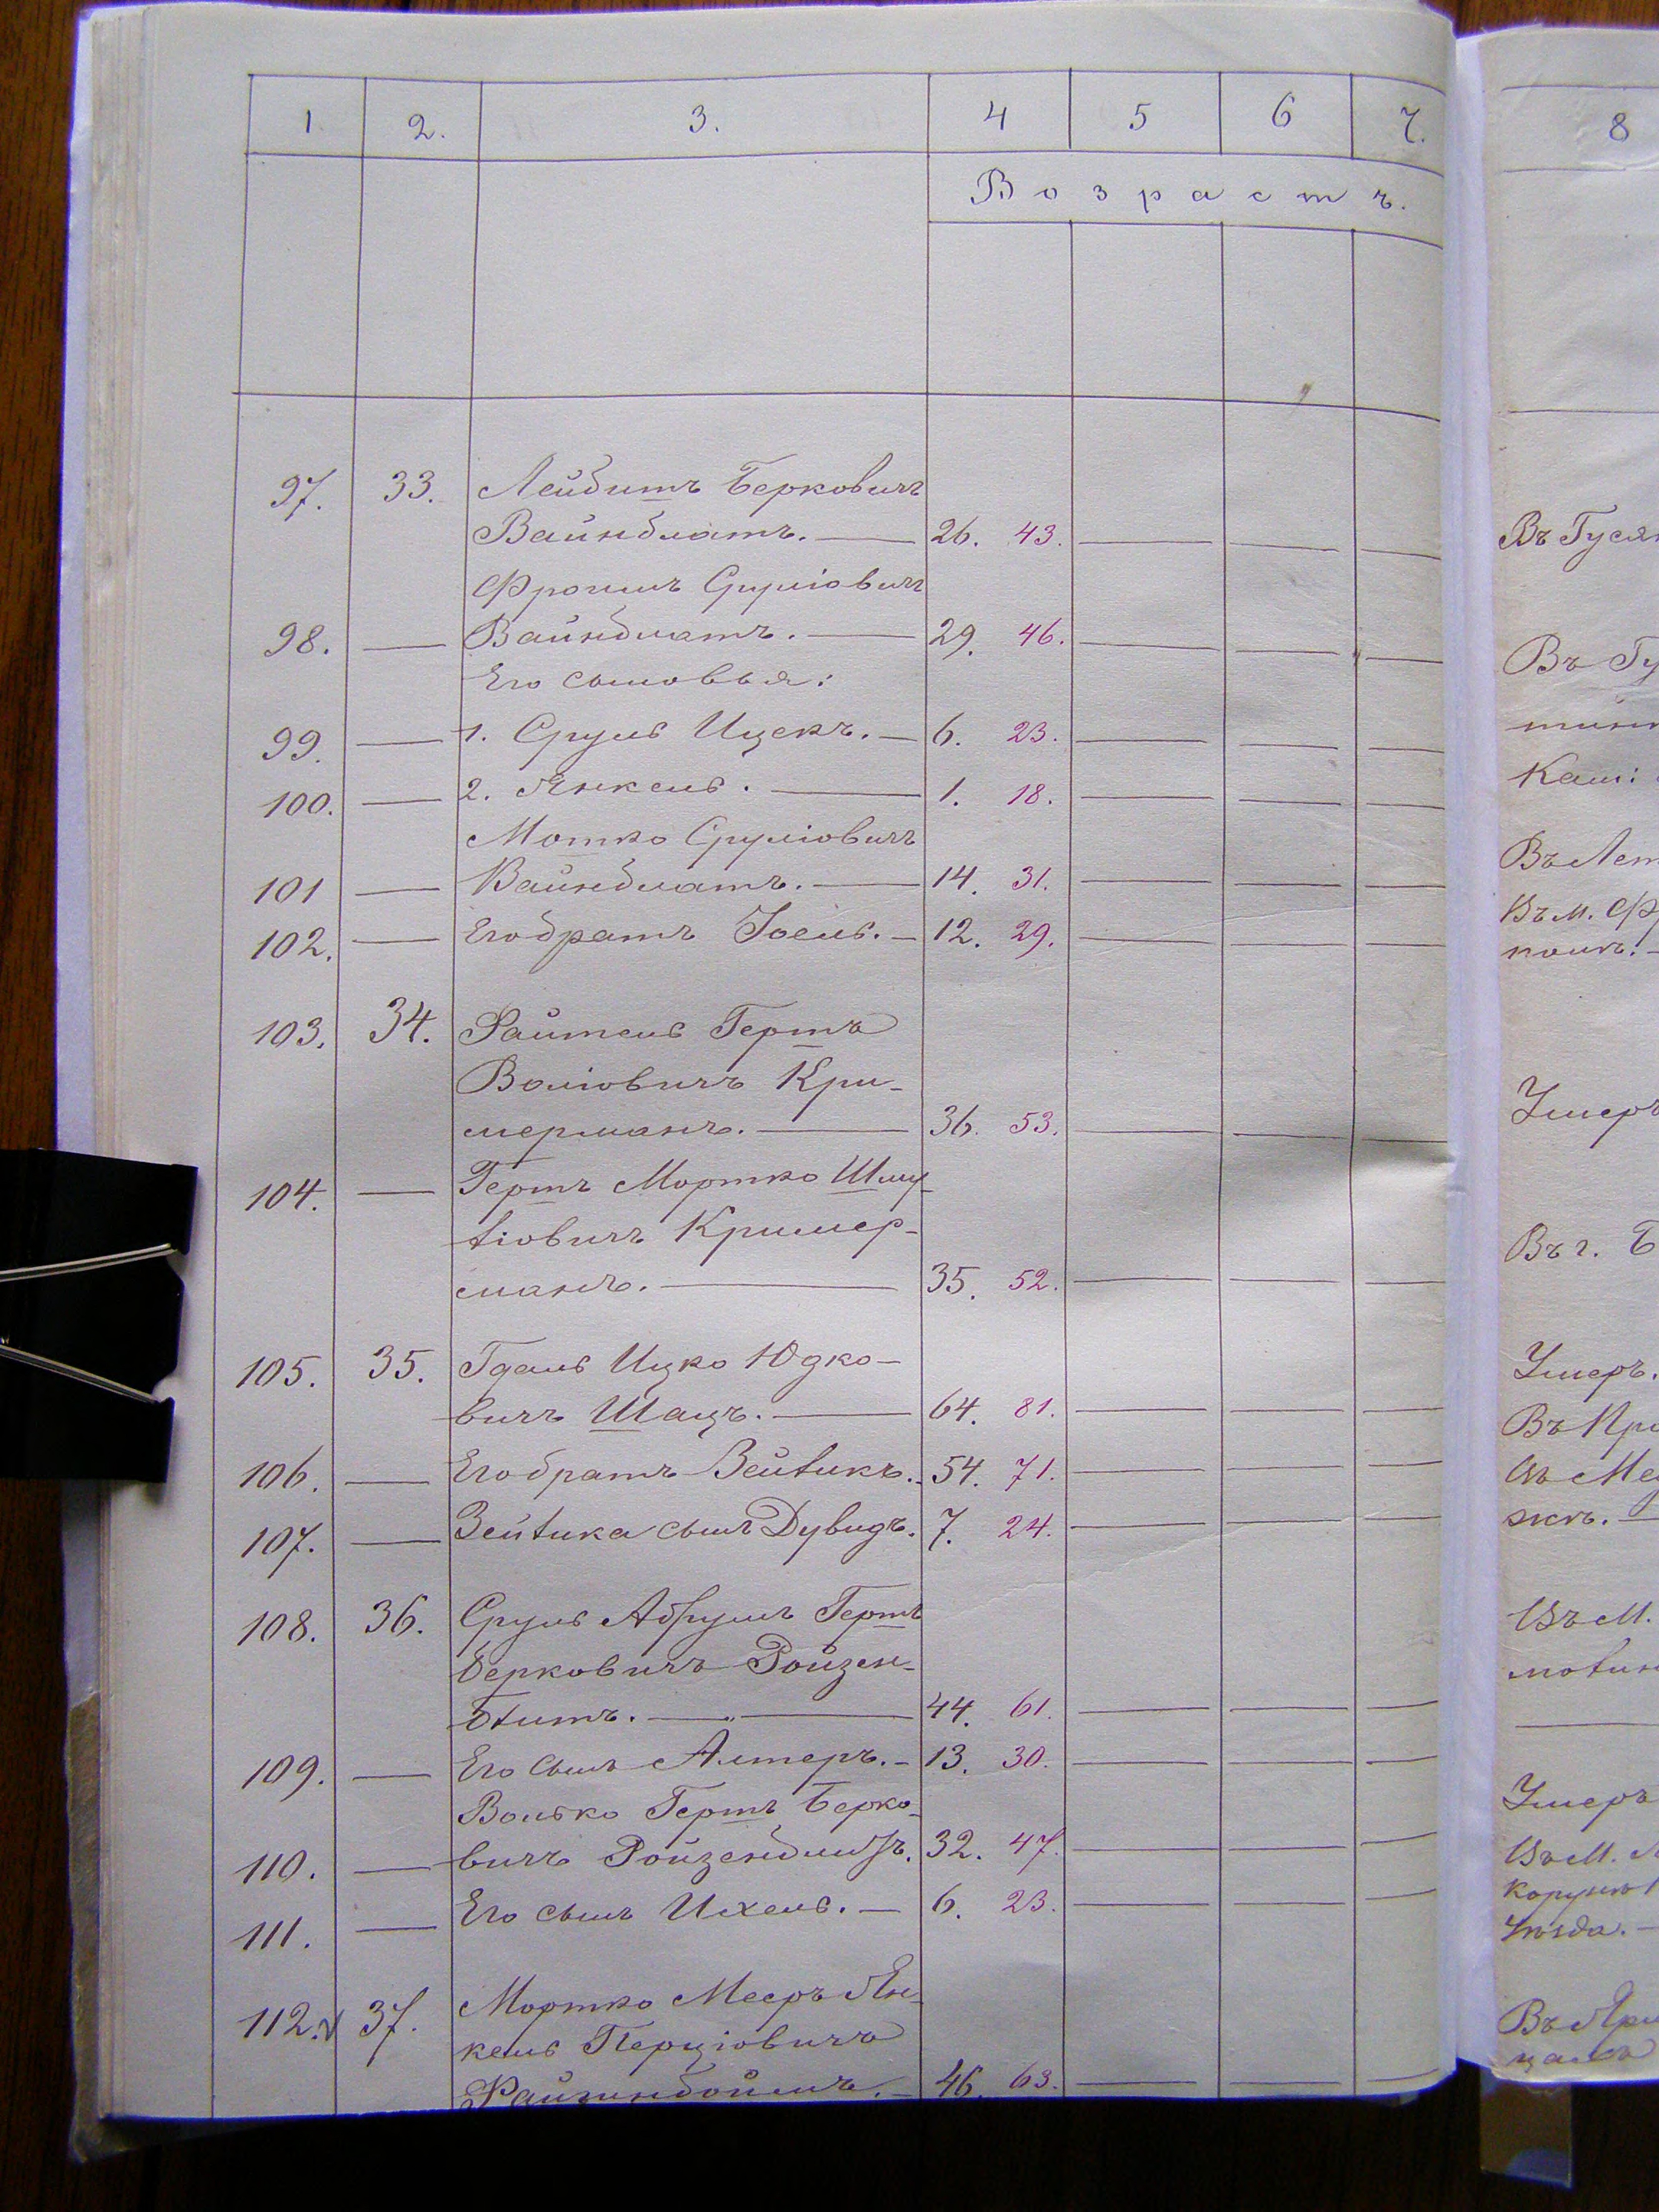 1 2. 3. 4 5 6 7. 8
Возрастъ.
97. 33. Лейбишъ Берковичъ
Вайнблатъ. — 26. 43. — — — Въ Гуся
Фроимъ Сруліовичъ
98. — Вайнблатъ. — 29. 46. — — — Въ Гу
Его сыновья:
99. — 1. Сруль Ицекъ. — 6. 23. — — —
100. — 2. Янкель. — 1. 18. — — — Кам:
Мошко Сруліовичъ
101 — Вайнблатъ. — 14. 31. — — — Въ Лет
102. — Его братъ Іосель. — 12. 29. — — — Въ м. Фр
103. 34. Гершъ
Воліовичъ Кри-
мерманъ. — 36. 53. — — — Умеръ
104. — Гершъ Мортко Шму-
ліовичъ Кример-
манъ. — 35. 52. — — — Въ г. Б
105. 35. Гдаль Ицко Юдко-
вичъ Шацъ. — 64. 81. — — — Умеръ.
106. — Его братъ Зейликъ. 54. 71. — — —
107. — Зейлика сынъ Дувидъ. 7. 24. — — —
108. 36. Сруль Абрумъ Гершъ
Берковичъ Ройзен-
блитъ. — 44. 61. — — —
109. — Его сынъ Алтеръ. — 13. 30. — — —
Волько Гершъ Берко- Умеръ
110. — вичъ Ройзенблитъ. 32. 47. — — —
111. — Его сынъ Ихель. — 6. 23. — — —
112. 37. Мортко Мееръ Ян-
кель Перціовичъ
Файнбоймъ. — 46. 63. — — —